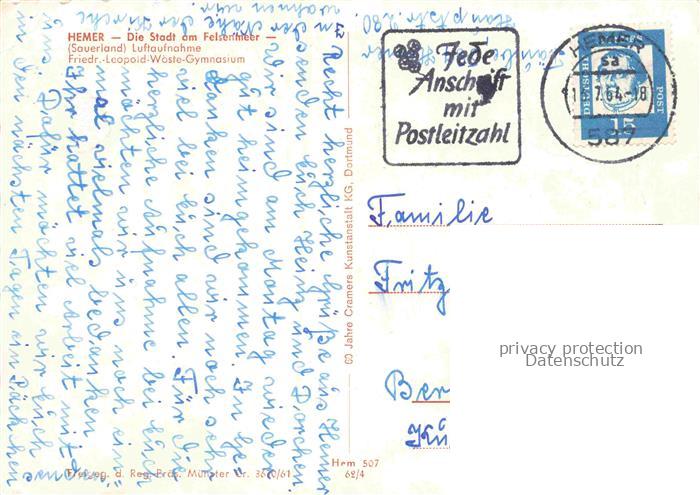 HEMER — Die Stadt am Felsenmeer —
(Sauerland) Luftaufnahme
Friedr.-Leopold-Wöste-Gymnasium
Jede
Anschrift
mit
Postleitzahl
HEMER
sa
7.64.-18
587
DEUTSCHE
POST
15
Familie
Fritz
Ber
Kü
privacy protection
Datenschutz
60 Jahre Cramers Kunstanstalt KG, Dortmund
Hem 507
62/4
Freigeg. d. Reg. Präs. Münster Nr. 3620/61
Recht herzliche Grüße aus Hemer
senden Euch Heinz und Dorchen.
Wir sind am Montag wieder
gut heimgekommen. In Ge-
danken sind wir noch sehr
viel bei Euch allen. Für die
herzliche Aufnahme bei Euch
möchten wir uns noch ein-
mal vielmals bedanken.
Ihr hattet viel Arbeit mit
uns. Dafür möchten wir Euch
in den nächsten Tagen ein Päckchen
wohnen wir
in der Nähe der Kirche
Hauptstr. 280.
Hemer